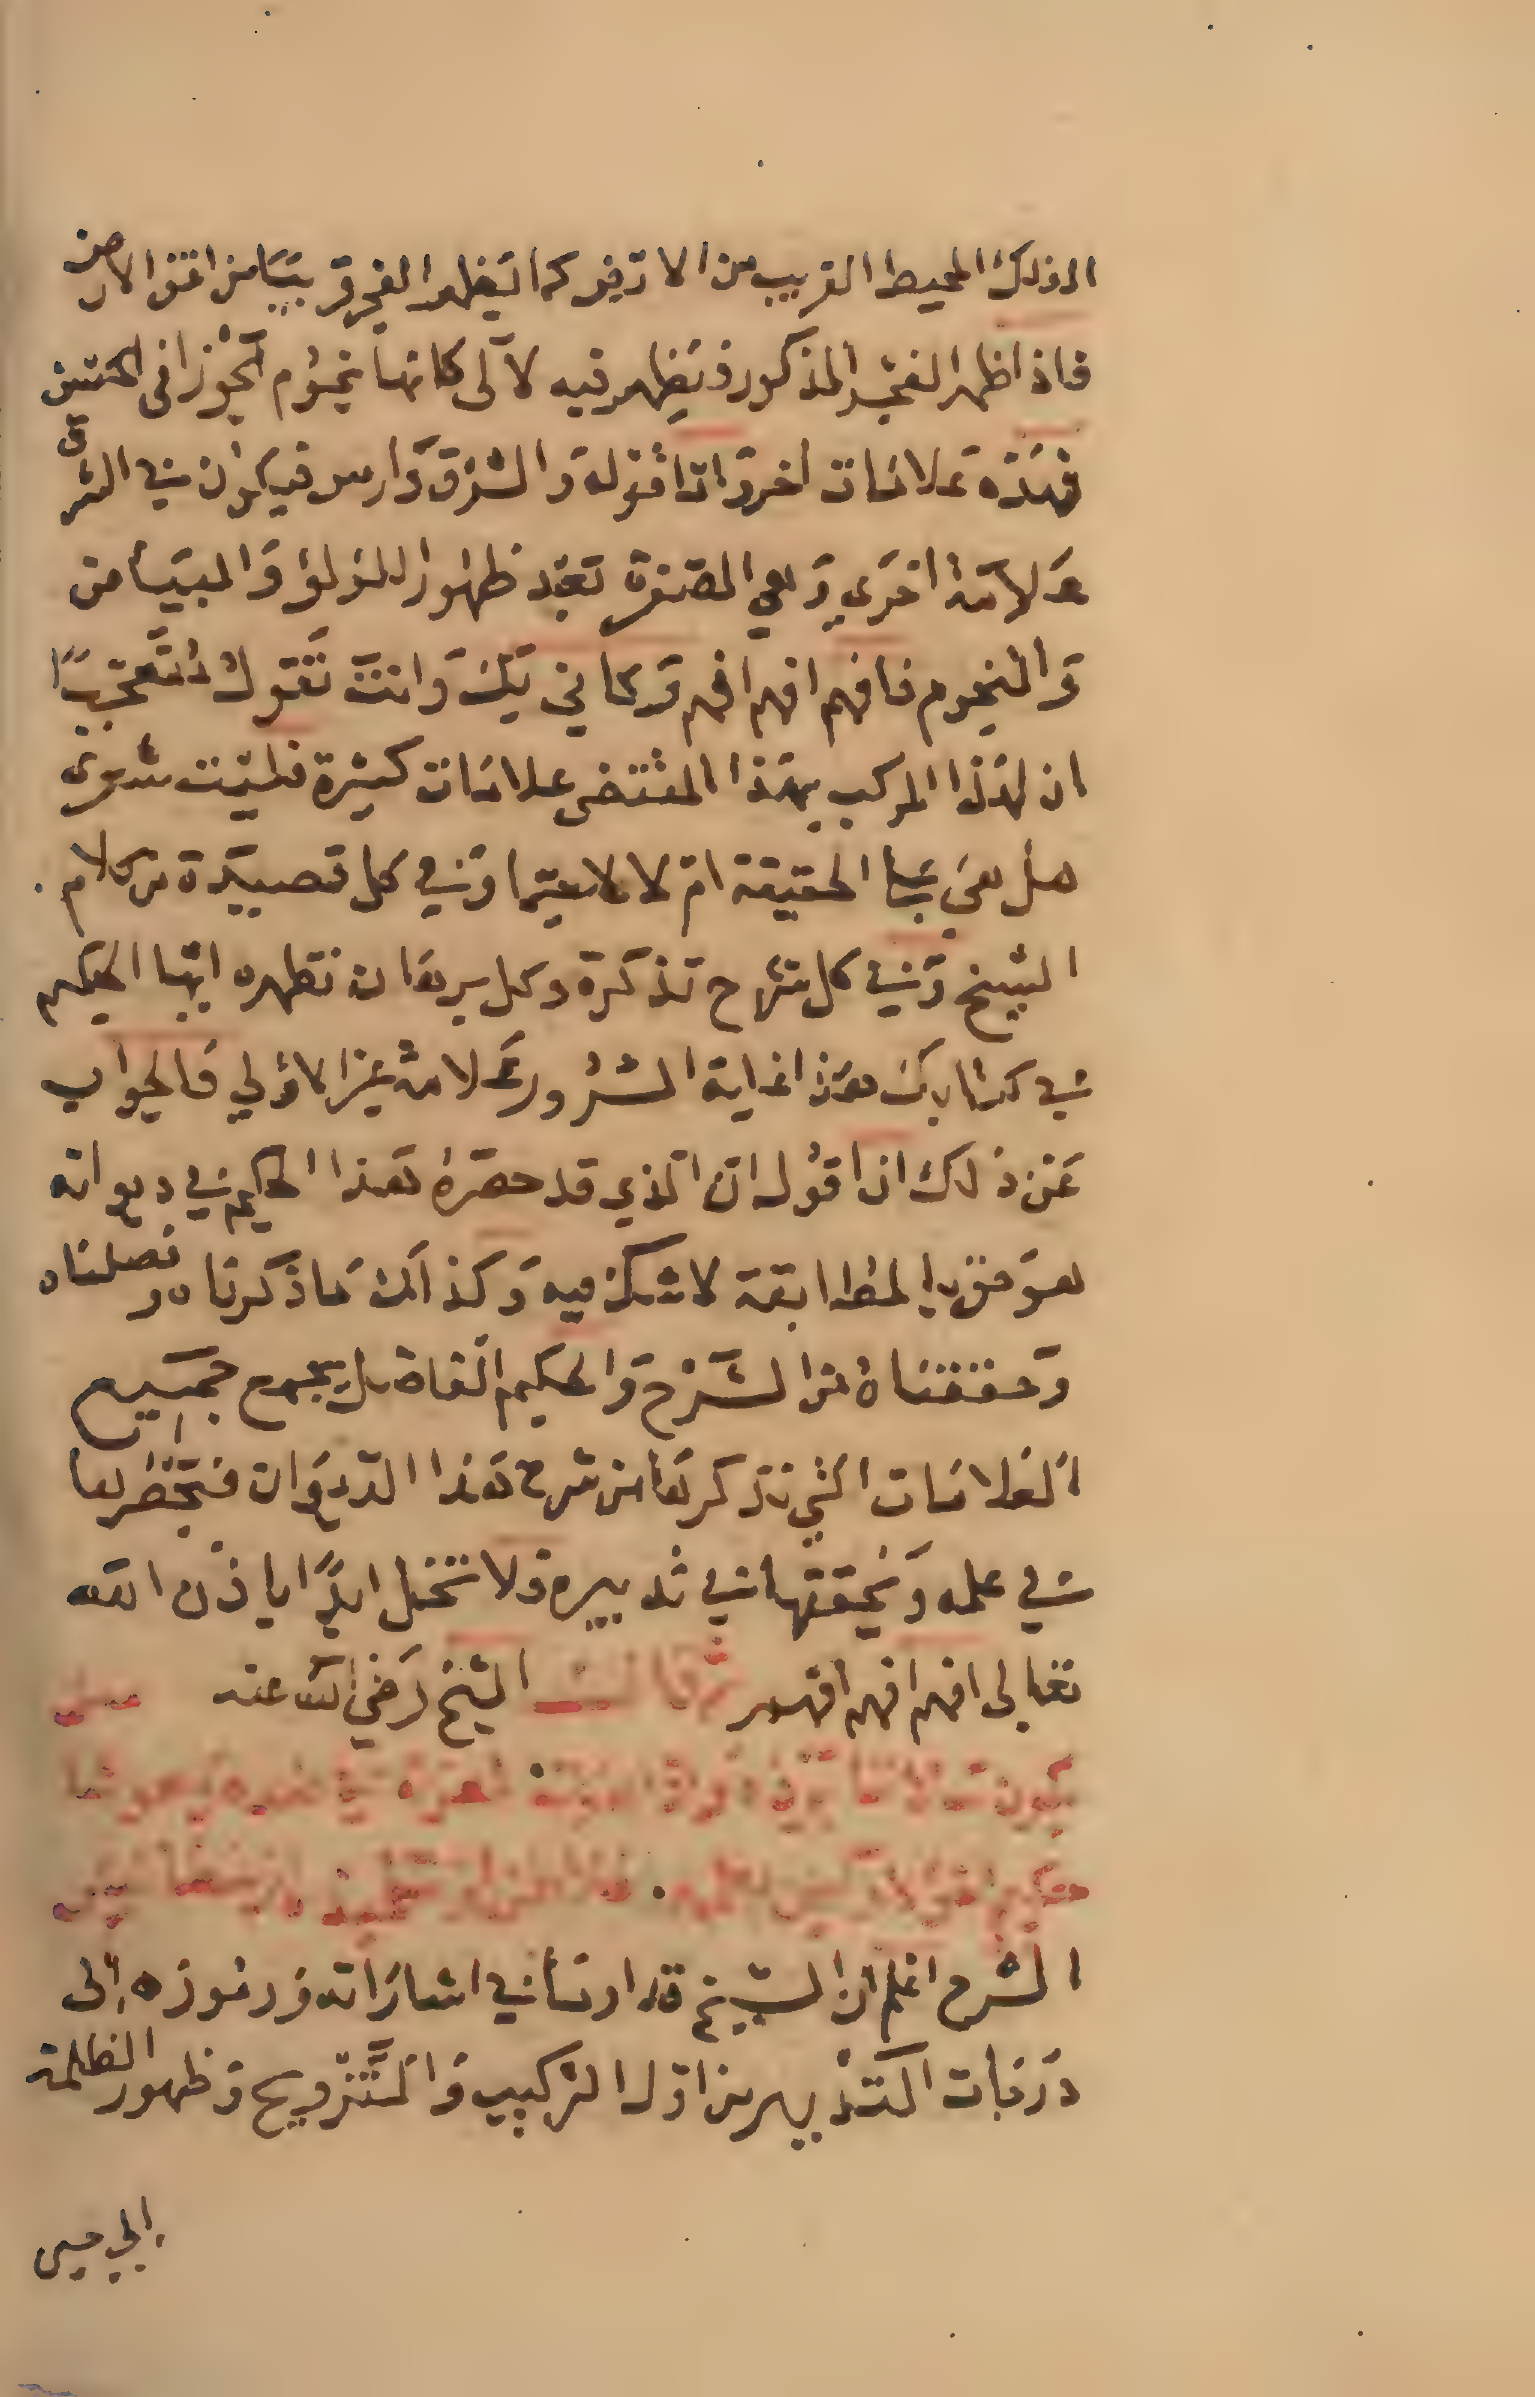 الفلك المحيط القريب من الا كما يظهر الفجر من افق الارض
فاذا ظهر الفجر المذكور فيظهر فيه لآلى كانها نجوم الجوزا في
فهذه علامات اخر واما قوله والشرق وارس فيكون في الشرق
علامة اخرى وهي الصفرة بعد ظهور اللؤلؤ والبياض
والنجوم فافهم افهم افهم وكاني بك وانت تقول متعجبًا
ان لهذا المركب بهذا المقتضى علامات كثيرة فليت شعرى
هل هي على الحقيقة ام لا لا سيما وفي كل قصيدة من كلام
الشيخ وفي كل شرح تذكرة وكل برهان تظهره ايها الحكيم
في كتابك هذا غاية السرور علامة غير الاولي فالجواب
عن ذلك ان اقول ان الذي قد حصره هذا الحكيم في ديوانه
هو حق بالمطابقة لا شك فيه وكذالك ماذكرناه وفصلناه
وحققناه من الشرح والحكيم الفاضل يجمع جميع
العلامات التي نذكرها من شرح هذا الديوان
في عمله ويحققها في تدبيره ولا تختل ابدًا باذن الله
تعالى افهم افهم افهم ثم قال الشيخ رضي الله عنه
الشرح اعلم ان الشيخ قد اومأ في اشاراته ورموزه إلى
درجات التدبير من اول التركيب والتزويج وظهور الظلمة
إلي حين